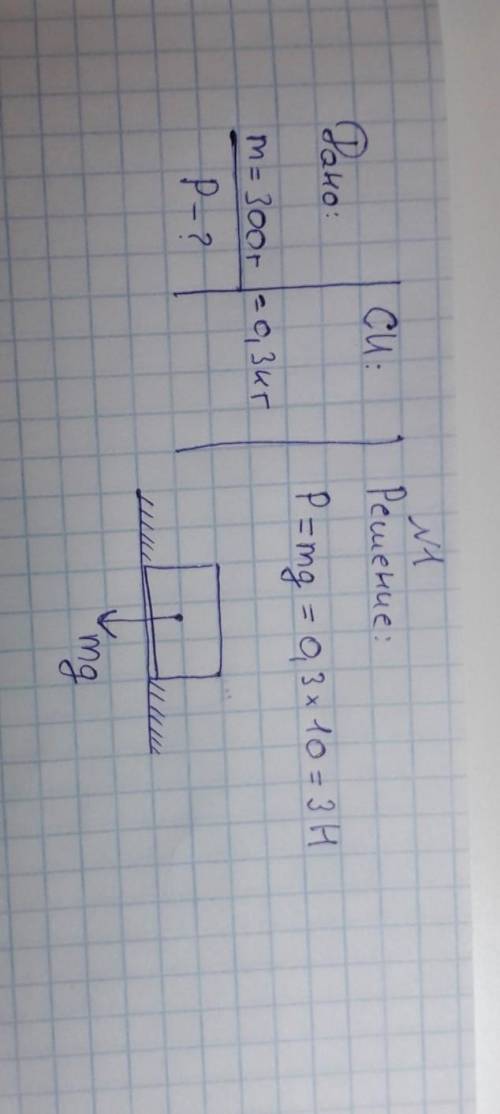 №1
Дано:
СИ:
Решение:
m = 300г
= 0,3кг
P - ?
P = mg = 0,3 × 10 = 3Н
mg